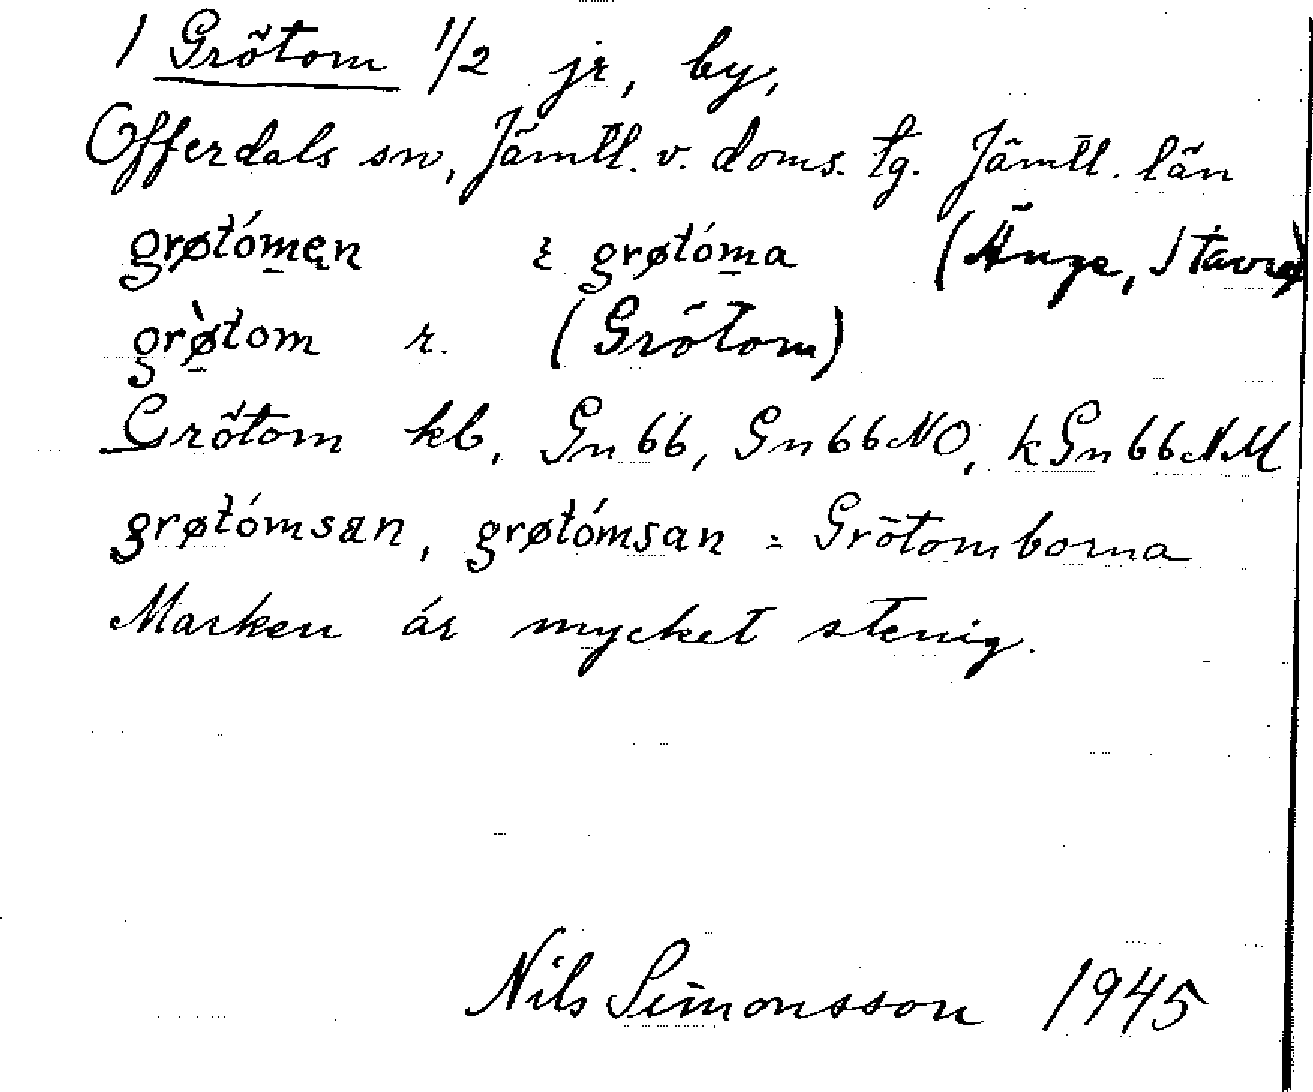 1 Grötom 1/2 jr, by,
Offerdals sn, Jämtl. v. doms. tg. Jämtl. län
grøtómen ɛ grøtóma (Änge, Stavre)
grø̀tom r. (Grötom)
Grötom kb, Gn 66, Gn 66 NO, kGn 66 NM
grøtómsan, grøtómsan = Grötomborna
Marken är mycket stenig.
Nils Simonsson 1945